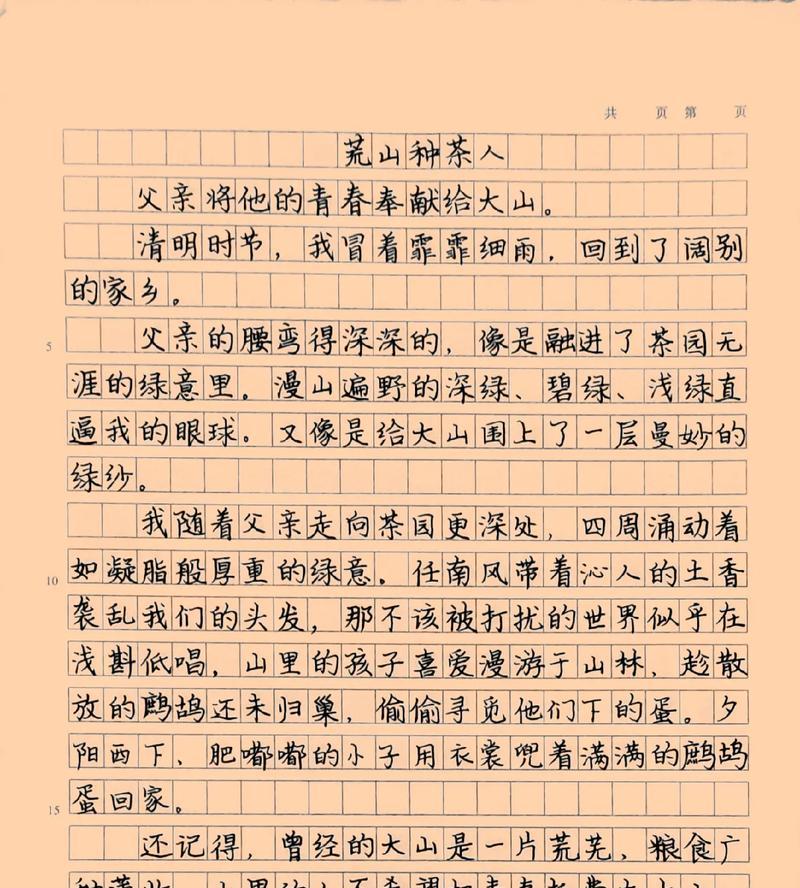 共 页 第 页
荒山种茶人
父亲将他的青春奉献给大山。
清明时节，我冒着霏霏细雨，回到了阔别
的家乡。
5 父亲的腰弯得深深的，像是融进了茶园无
涯的绿意里。漫山遍野的深绿、碧绿、浅绿直
逼我的眼球。又像是给大山围上了一层曼妙的
绿纱。
我随着父亲走向茶园更深处，四周涌动着
10 如凝脂般厚重的绿意。任南风带着沁人的土香
袭乱我们的头发，那不该被打扰的世界似乎在
浅斟低唱，山里的孩子喜爱漫游于山林，趁散
放的鹧鸪还未归巢，偷偷寻觅他们下的蛋。夕
阳西下、肥嘟嘟的小子用衣裳兜着满满的鹧鸪
15 蛋回家。
还记得，曾经的大山是一片荒芜，粮食广